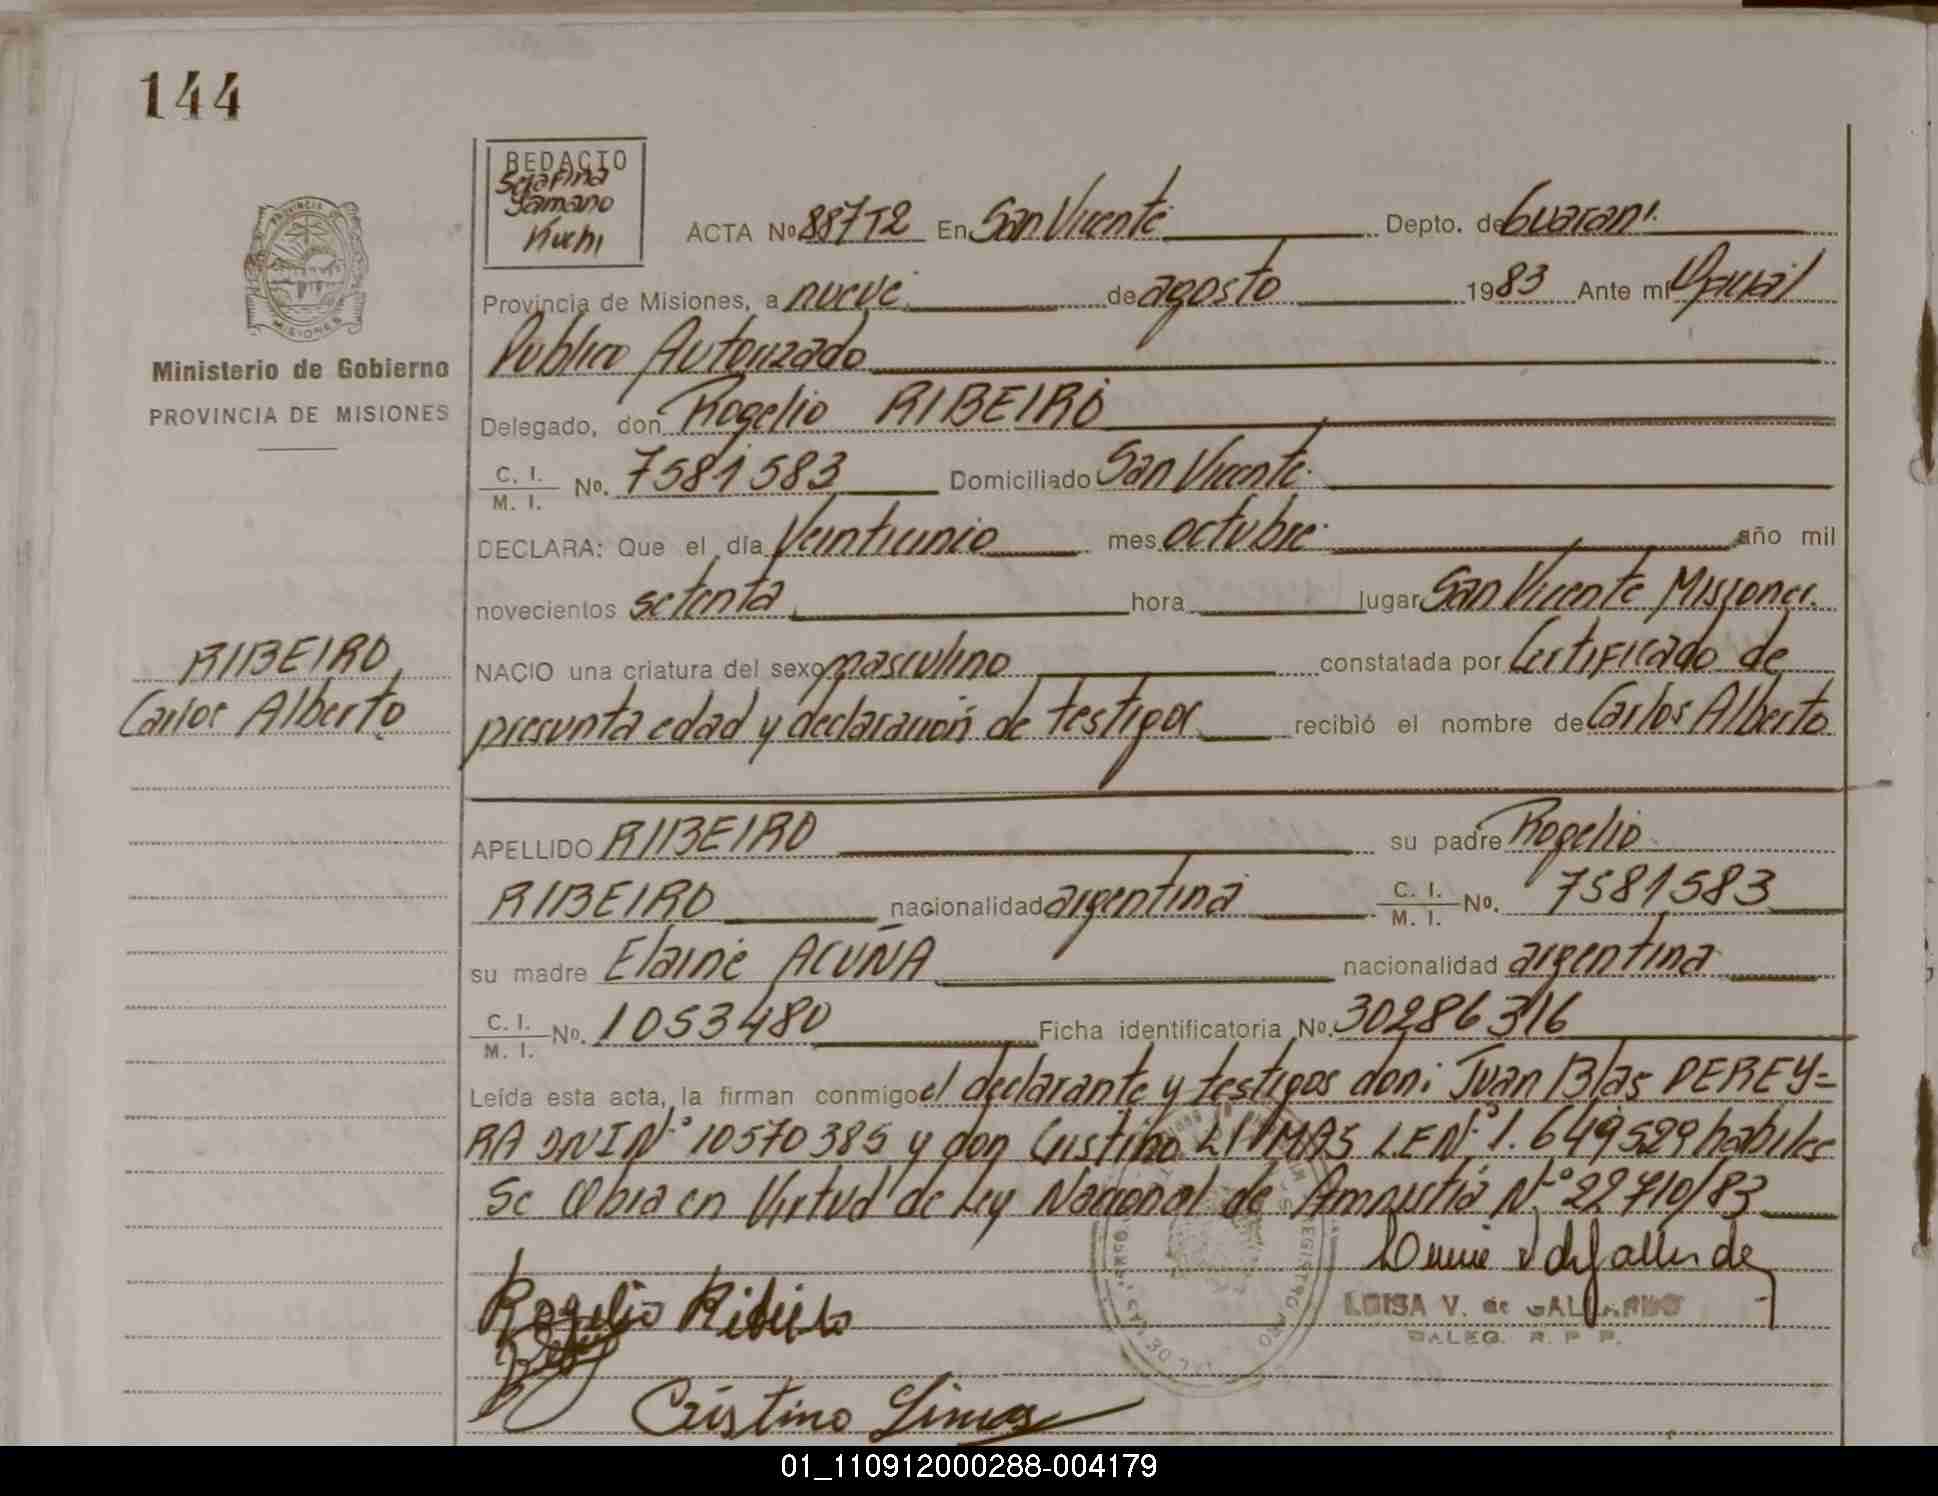 144
REDACTO
Serafina
Yamano
Kuchi
ACTA Nº 887T2 En San Vicente Depto. de Guaraní
Provincia de Misiones, a nueve de agosto 1983 Ante mí Oficial
Publico Autorizado
Ministerio de Gobierno
PROVINCIA DE MISIONES
Delegado, don Rogelio RIBEIRO
C. I. / M. I. Nº. 7581583 Domiciliado San Vicente
DECLARA: Que el día Veintiunio mes octubre año mil
novecientos setenta hora lugar San Vicente Misiones
RIBEIRO
Carlos Alberto
NACIO una criatura del sexo masculino constatada por Certificado de
presunta edad y declaración de testigos recibió el nombre de Carlos Alberto
APELLIDO RIBEIRO su padre Rogelio
RIBEIRO nacionalidad argentina C. I. / M. I. Nº. 7581583
su madre Elaine ACUÑA nacionalidad argentina
C. I. / M. I. Nº. 1053480 Ficha identificatoria Nº. 30286316
Leída esta acta, la firman conmigo el declarante y testigos don: Juan Blas PEREY=
RA DNI Nº 10570385 y don Cristino LIMAS LE Nº 1.649529 habiles
Se labra en Virtud de Ley Nacional de Amnistía Nº 22710/83
Rogelio Ribeiro
LUISA V. de GALLARDO
DALEG. R. P. P.
Cristino Limas
01_110912000288-004179